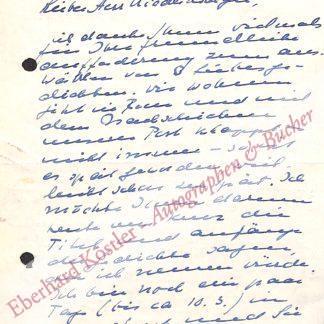 ich danke Ihnen vielmals
für Ihre freundliche
Aufforderung zum aus-
wählen von
. Wir wohnen
jetzt in Rom und mit
dem Nachschicken
unserer Post klappt
nicht immer - 
es spät geworden
leicht schon zu spät. Ich
möchte Ihnen darum
nur die
Titel und Anfänge
der Gedichte sagen,
die ich nennen würde.
Ich bin noch ein paar
Tage (bis ca 10.3.) in
und Sie
Eberhard Köstler - Autographen & Bücher